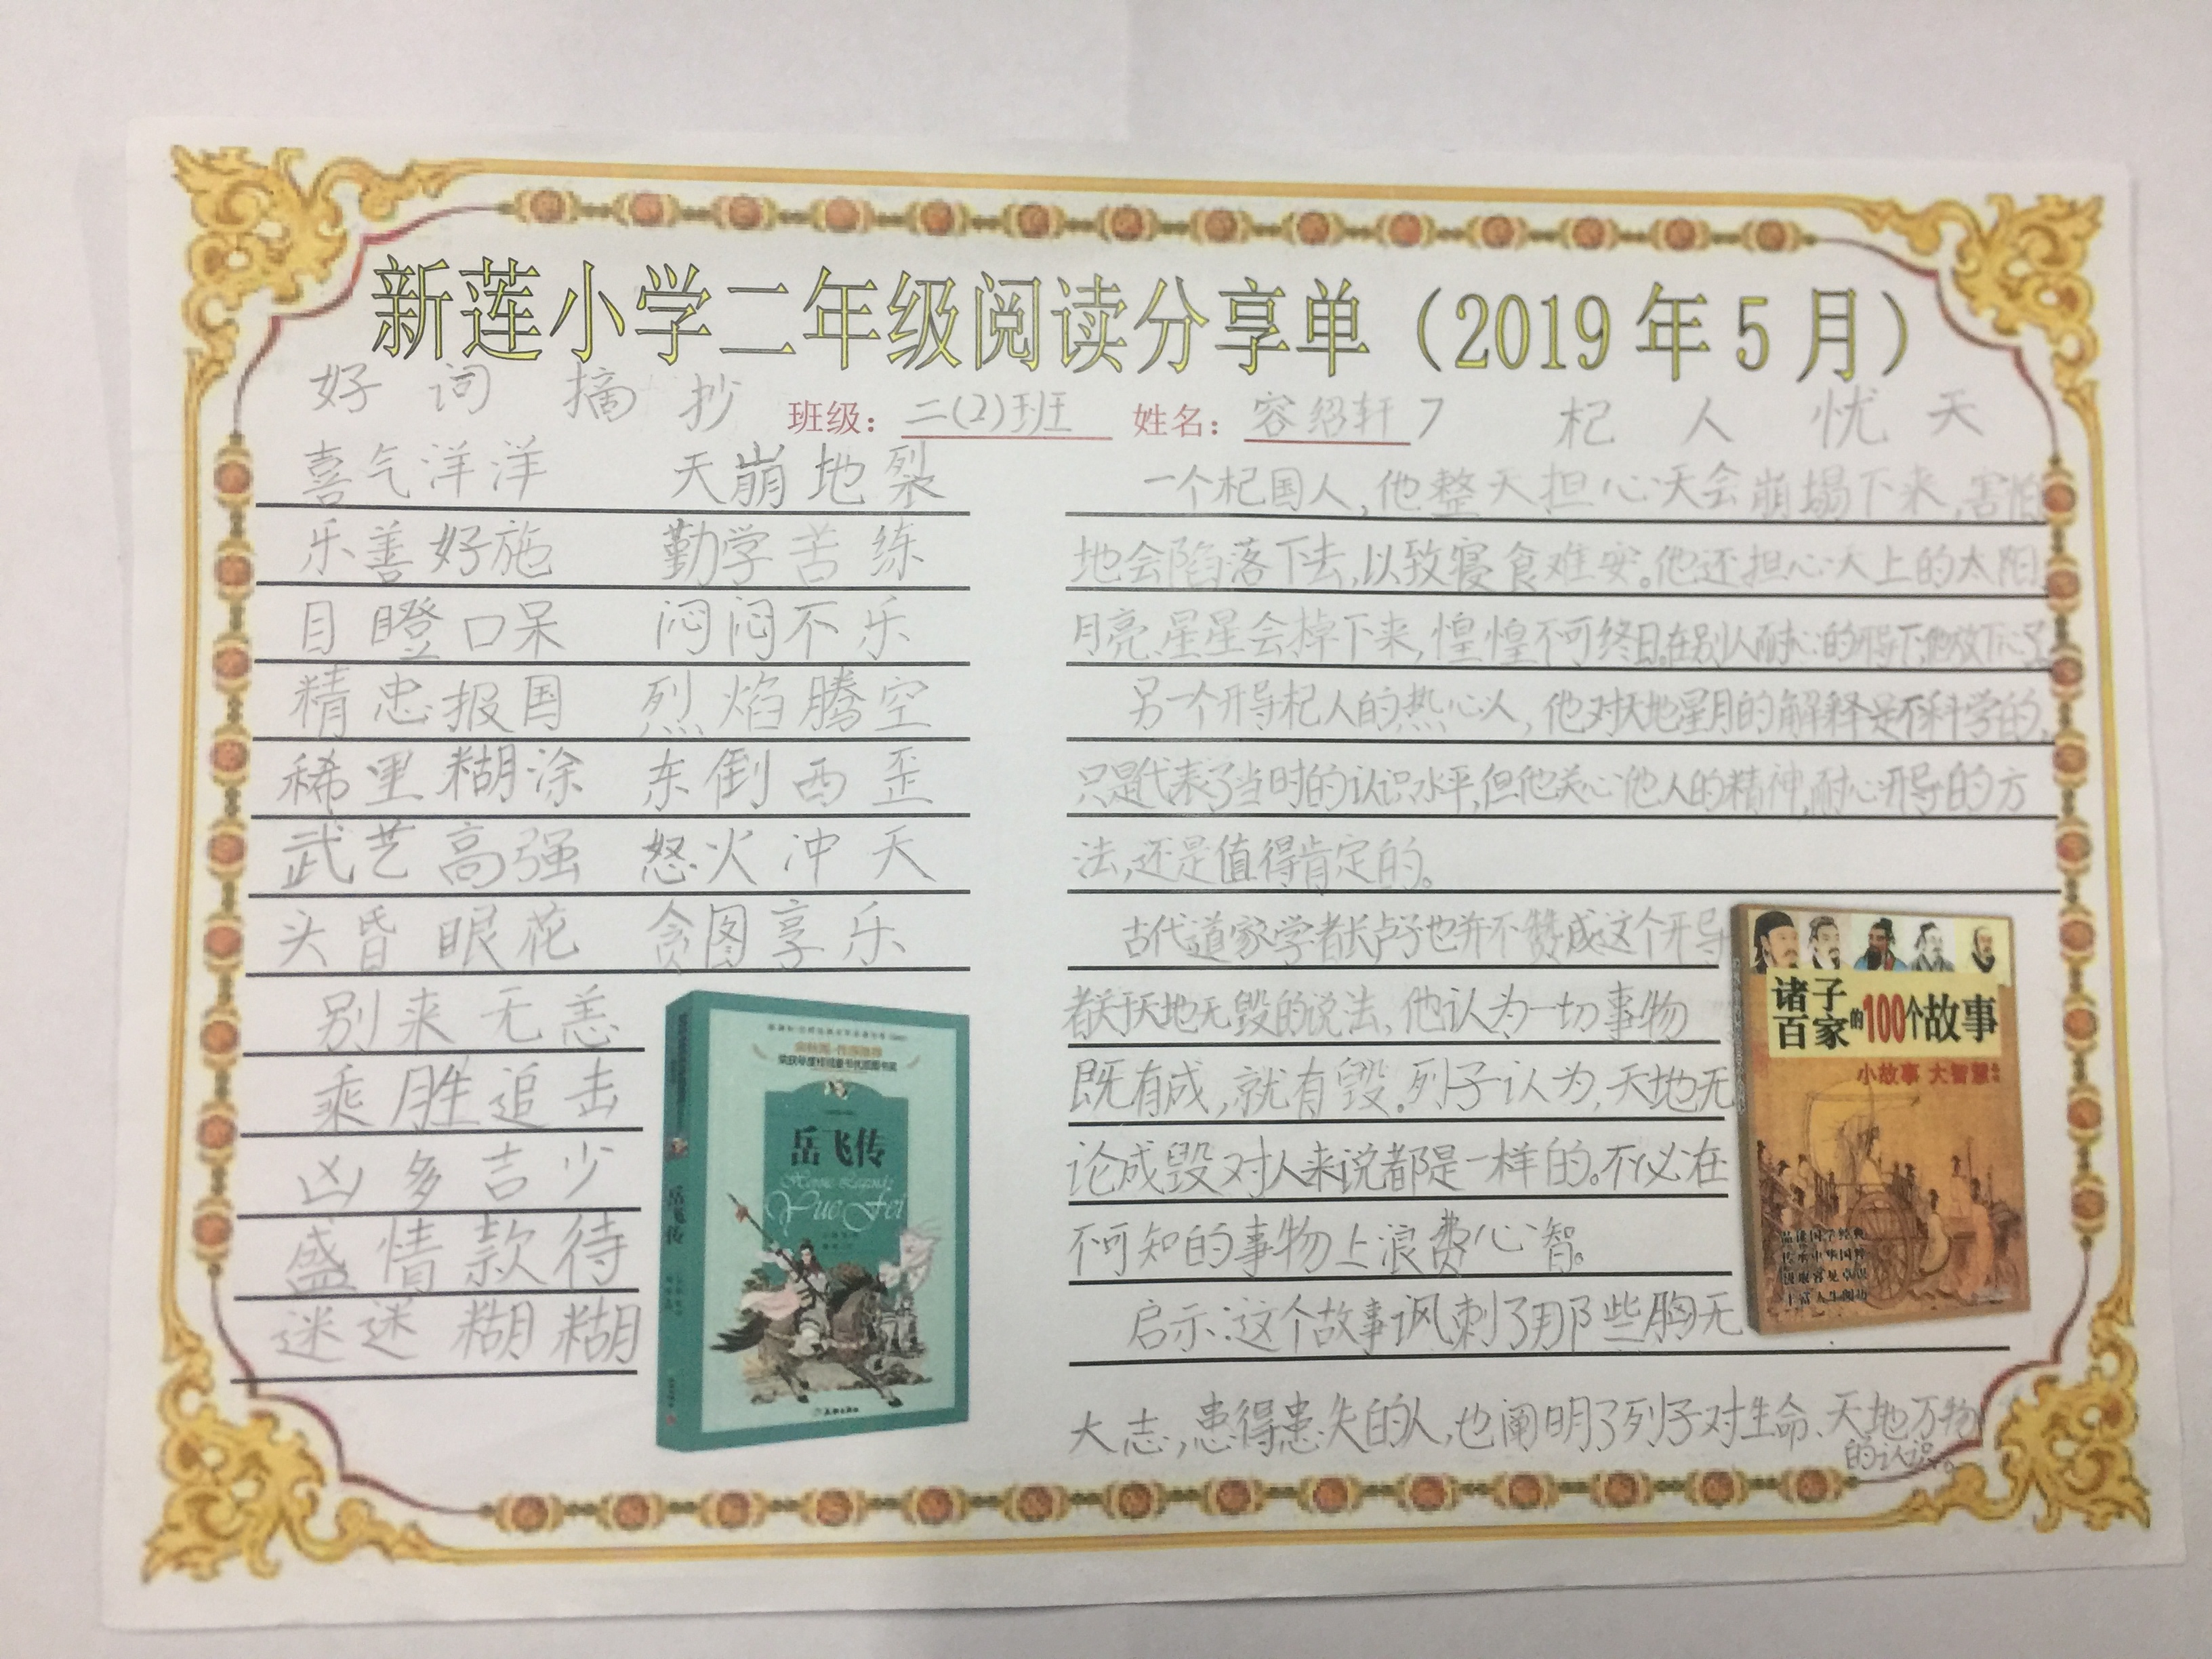 新莲小学二年级阅读分享单（2019年5月）
好词摘抄
班级：二(2)班 姓名：容绍轩 7
喜气洋洋 天崩地裂
乐善好施 勤学苦练
目瞪口呆 闷闷不乐
精忠报国 烈焰腾空
稀里糊涂 东倒西歪
武艺高强 怒火冲天
头昏眼花 贪图享乐
别来无恙
乘胜追击
凶多吉少
盛情款待
迷迷糊糊
岳飞传
Heroic Legends
Yue Fei
岳飞传
杞人忧天
一个杞国人,他整天担心天会崩塌下来,害怕
地会陷落下去,以致寝食难安。他还担心天上的太阳、
月亮、星星会掉下来,惶惶不可终日。在别人耐心的开导下,他放下心了。
另一个开导杞人的热心人,他对天地星月的解释是不科学的,
只是代表了当时的认识水平,但他关心他人的精神,耐心开导的方
法,还是值得肯定的。
古代道家学者长卢子也并不赞成这个开导
者关于天地无毁的说法,他认为一切事物
既有成,就有毁。列子认为,天地无
论成毁对人来说都是一样的。不必在
不可知的事物上浪费心智。
启示:这个故事讽刺了那些胸无
大志,患得患失的人,也阐明了列子对生命、天地万物
的认识。
诸子百家的100个故事
小故事 大智慧
品读国学经典
传承中华国粹